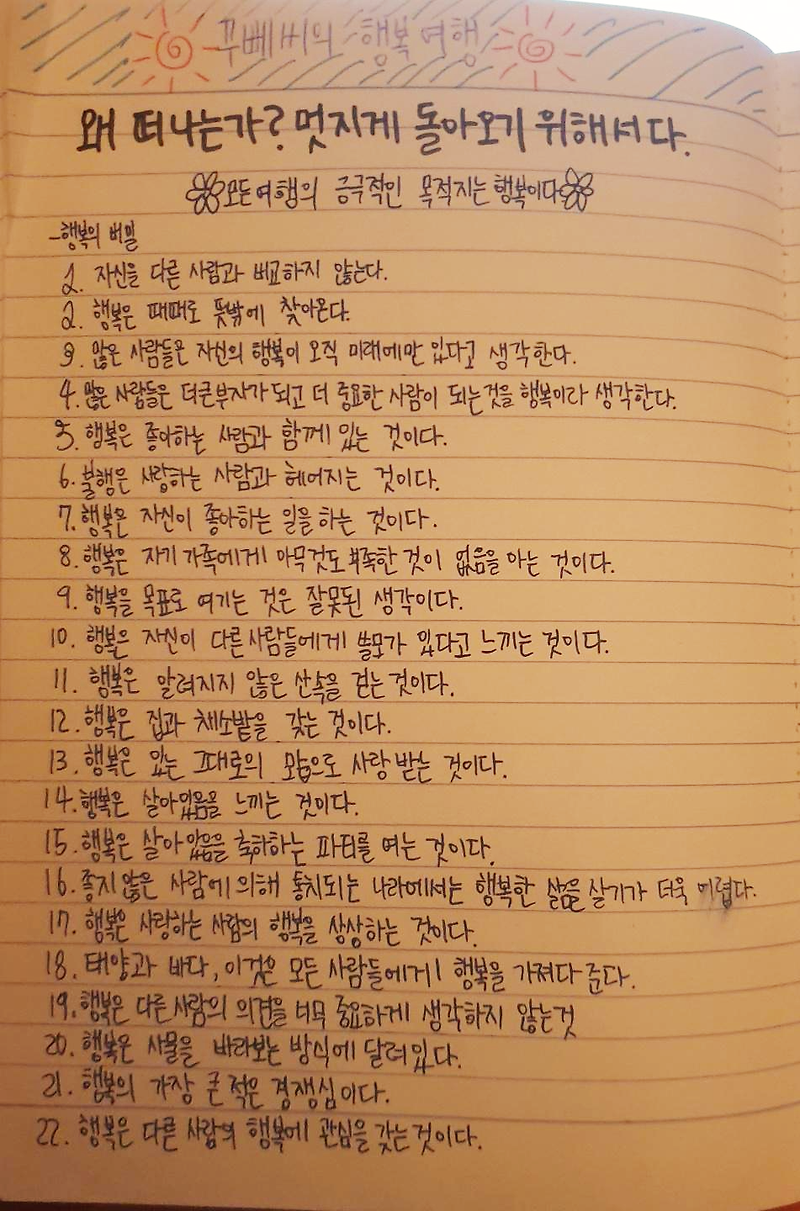 꾸뻬씨의 행복여행
왜 떠나는가? 멋지게 돌아오기 위해서다.
모든여행의 궁극적인 목적지는 행복이다
-행복의 비밀
1. 자신을 다른 사람과 비교하지 않는다.
2. 행복은 때때로 뜻밖에 찾아온다.
3. 많은 사람들은 자신의 행복이 오직 미래에만 있다고 생각한다.
4. 많은 사람들은 더큰부자가 되고 더 중요한 사람이 되는것을 행복이라 생각한다.
5. 행복은 좋아하는 사람과 함께 있는 것이다.
6. 불행은 사랑하는 사람과 헤어지는 것이다.
7. 행복은 자신이 좋아하는 일을 하는 것이다.
8. 행복은 자기 가족에게 아무것도 부족한 것이 없음을 아는 것이다.
9. 행복을 목표로 여기는 것은 잘못된 생각이다.
10. 행복은 자신이 다른 사람들에게 쓸모가 있다고 느끼는 것이다.
11. 행복은 알려지지 않은 산속을 걷는 것이다.
12. 행복은 집과 채소밭을 갖는 것이다.
13. 행복은 있는 그대로의 모습으로 사랑받는 것이다.
14. 행복은 살아있음을 느끼는 것이다.
15. 행복은 살아있음을 축하하는 파티를 여는 것이다.
16. 좋지않은 사람에 의해 통치되는 나라에서는 행복한 삶을 살기가 더욱 어렵다.
17. 행복은 사랑하는 사람의 행복을 상상하는 것이다.
18. 태양과 바다, 이것은 모든 사람들에게 행복을 가져다 준다.
19. 행복은 다른 사람의 의견을 너무 중요하게 생각하지 않는것
20. 행복은 사물을 바라보는 방식에 달려있다.
21. 행복의 가장 큰 적은 경쟁심이다.
22. 행복은 다른 사람의 행복에 관심을 갖는것이다.